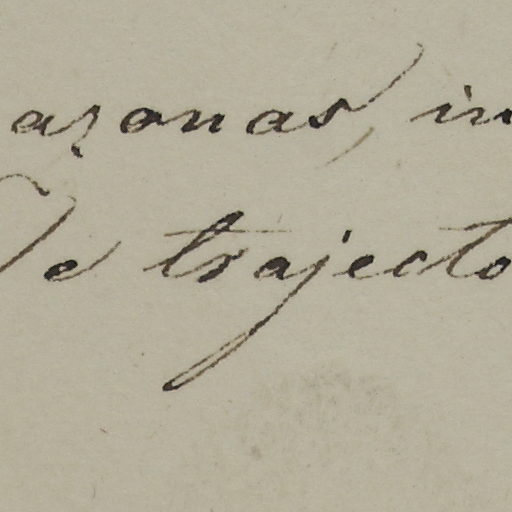 azonas, in
de trajecto